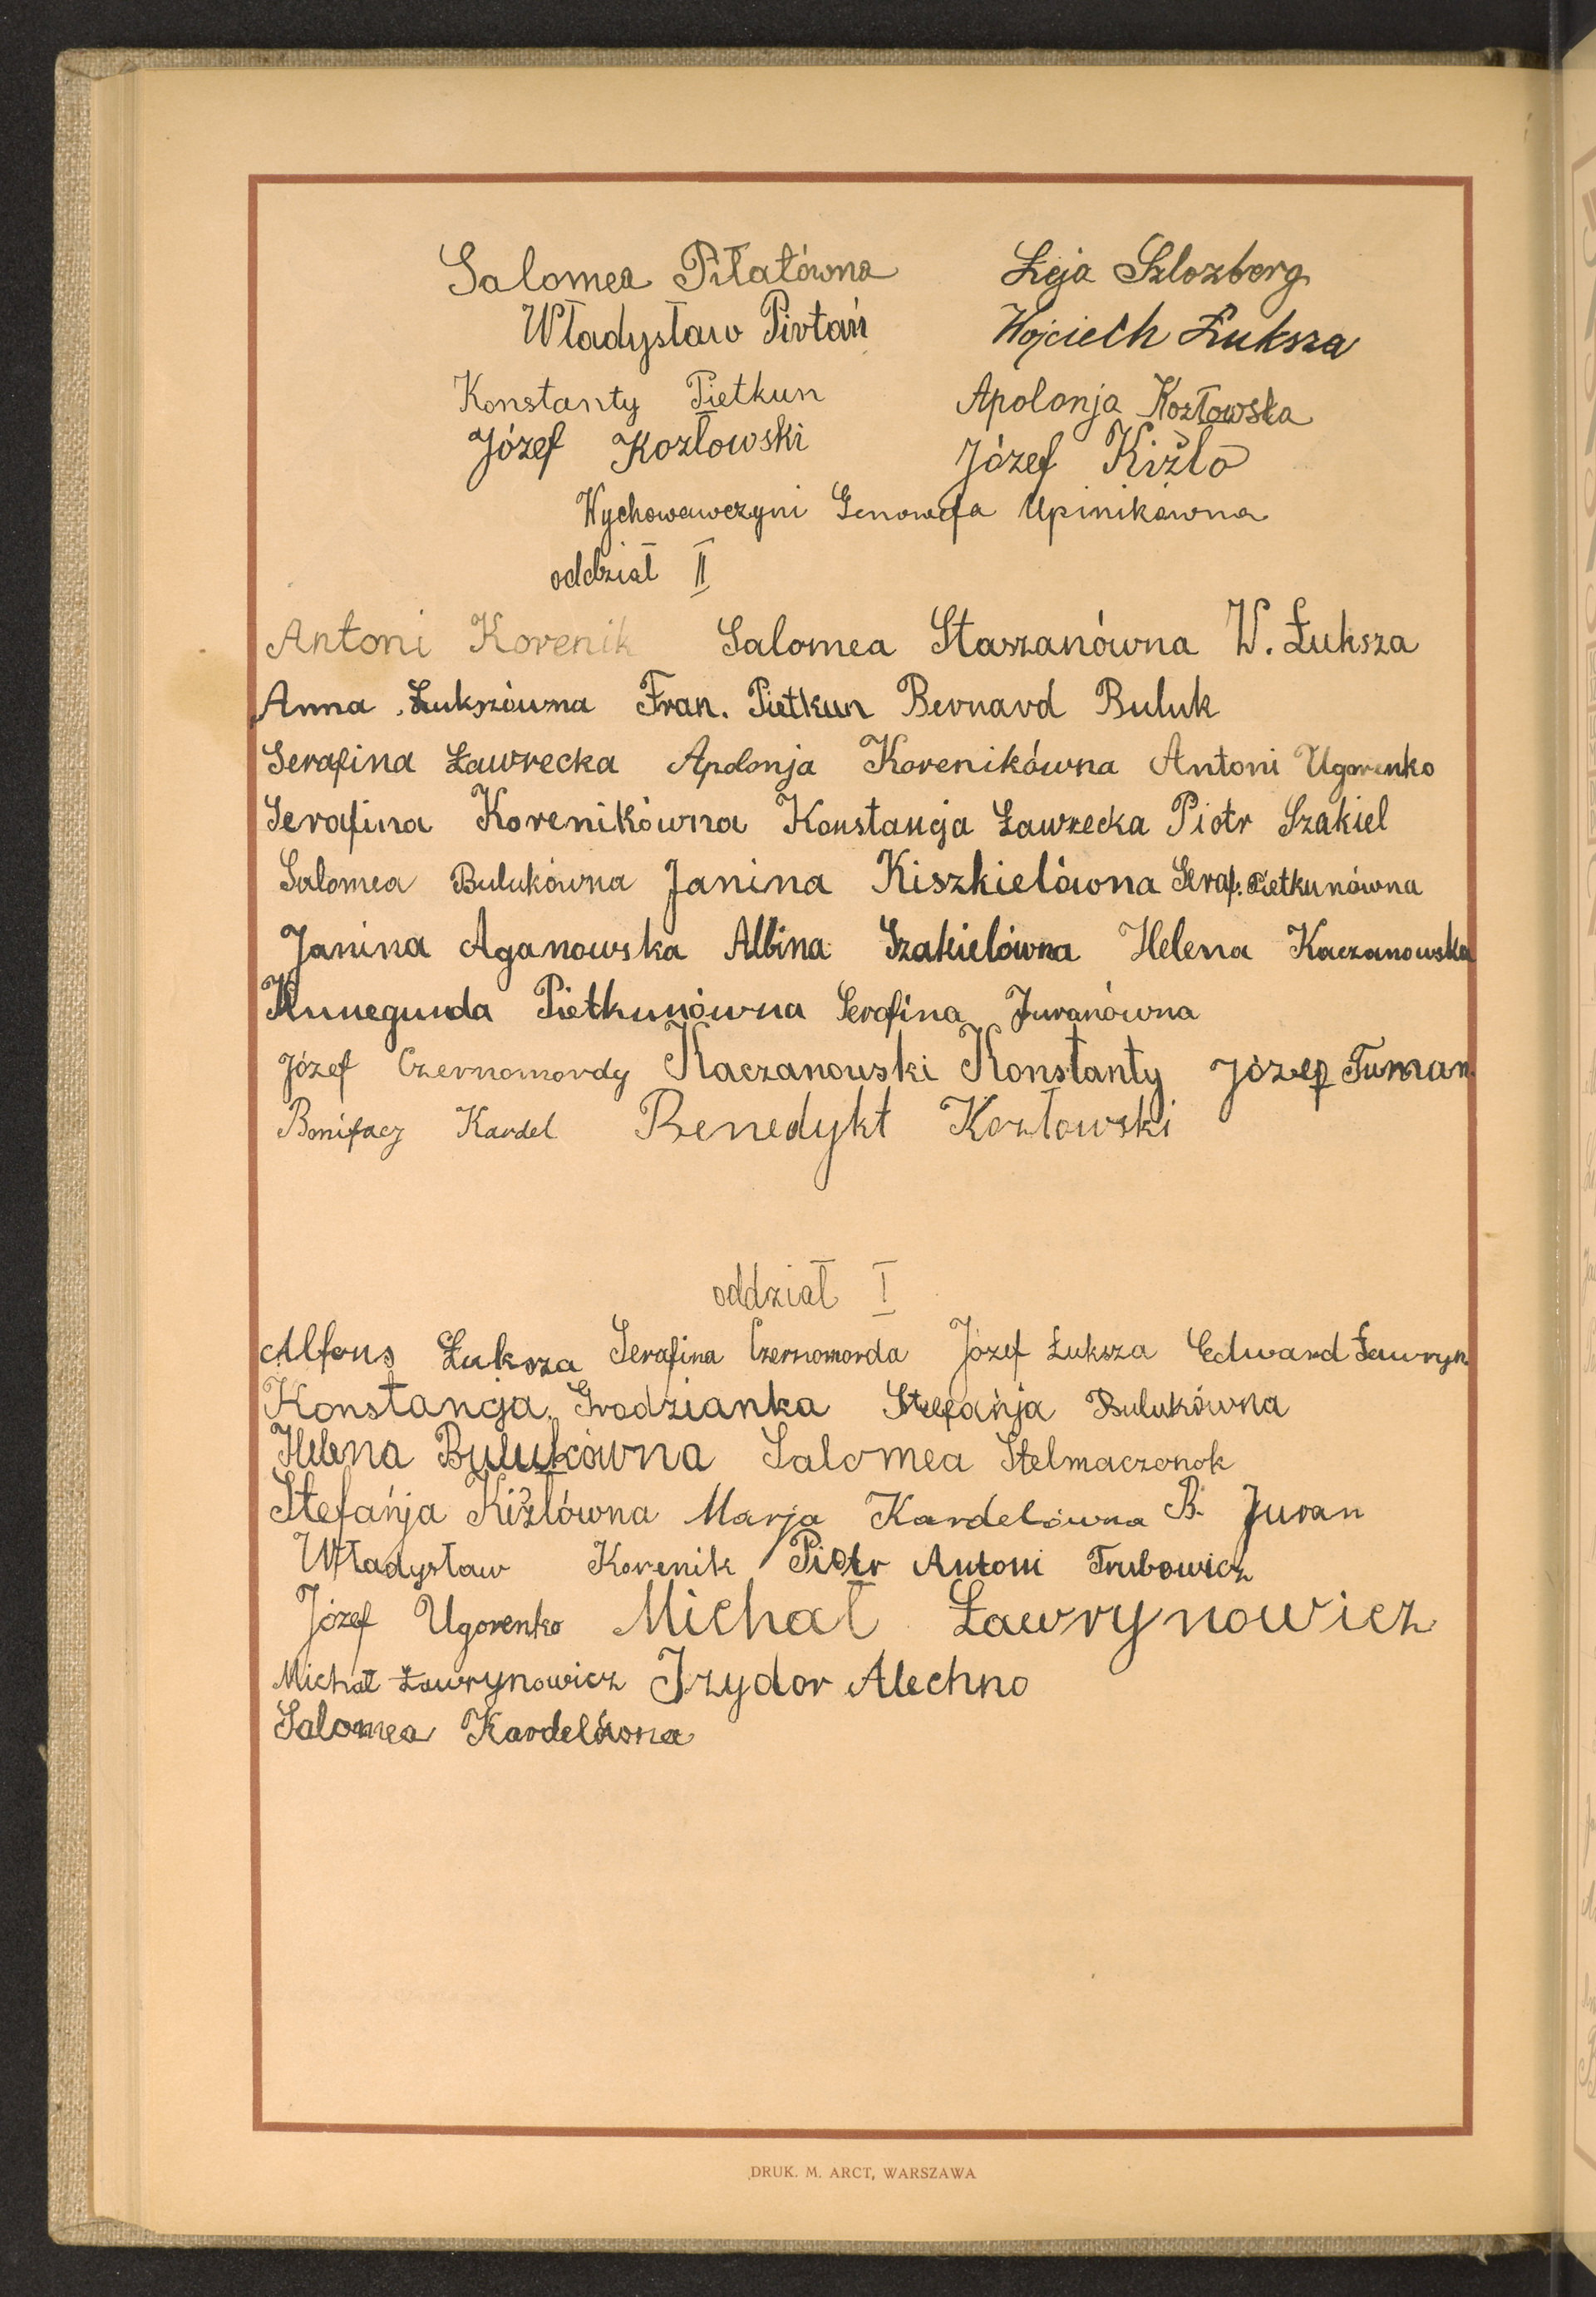 Salomea Piłatówna Leja Szlozberg
Władysław Pivtań Wojciech Łuksza
Konstanty Pietkun Apolonja Kozłowska
Józef Kozłowski Józef Kiżlo
Wychowawczyni Genowefa Upinikówna
oddział II
Antoni Korenik Salomea Staszanówna W. Łuksza
Anna Łukszówna Fran. Pietkun Bernard Buluk
Serafina Ławrecka Apolonja Korenikówna Antoni Ugorenko
Serafina Korenikówna Konstancja Ławrecka Piotr Szakiel
Salomea Bulukówna Janina Kiszkielówna Seraf. Pietkunówna
Janina Aganowska Albina Szakielówna Helena Kaczanowska
Kunegunda Pietkunówna Serafina Juranówna
Józef Czernomordy Kaczanowski Konstanty Józef Tuman.
Bonifacy Kardel Benedykt Kozłowski
oddział I
Alfons Łuksza Serafina Czernomorda Józef Łuksza Edward Ławryn
Konstancja Grodzianka Stefańja Bulukówna
Helena Bulukówna Salomea Stelmaczonok
Stefańja Kiżlówna Marja Kardelówna B. Juran
Władysław Korenik Piotr Antoni Trubowicz
Józef Ugorenko Michał Ławrynowicz
Michał Ławrynowicz Izydor Alechno
Salomea Kardelówna
DRUK. M. ARCT, WARSZAWA